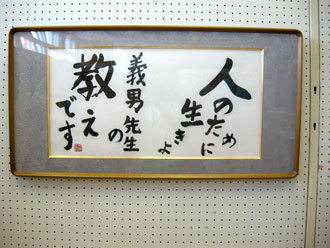 人のため
に
生きよ
義男先生
の
教え
です